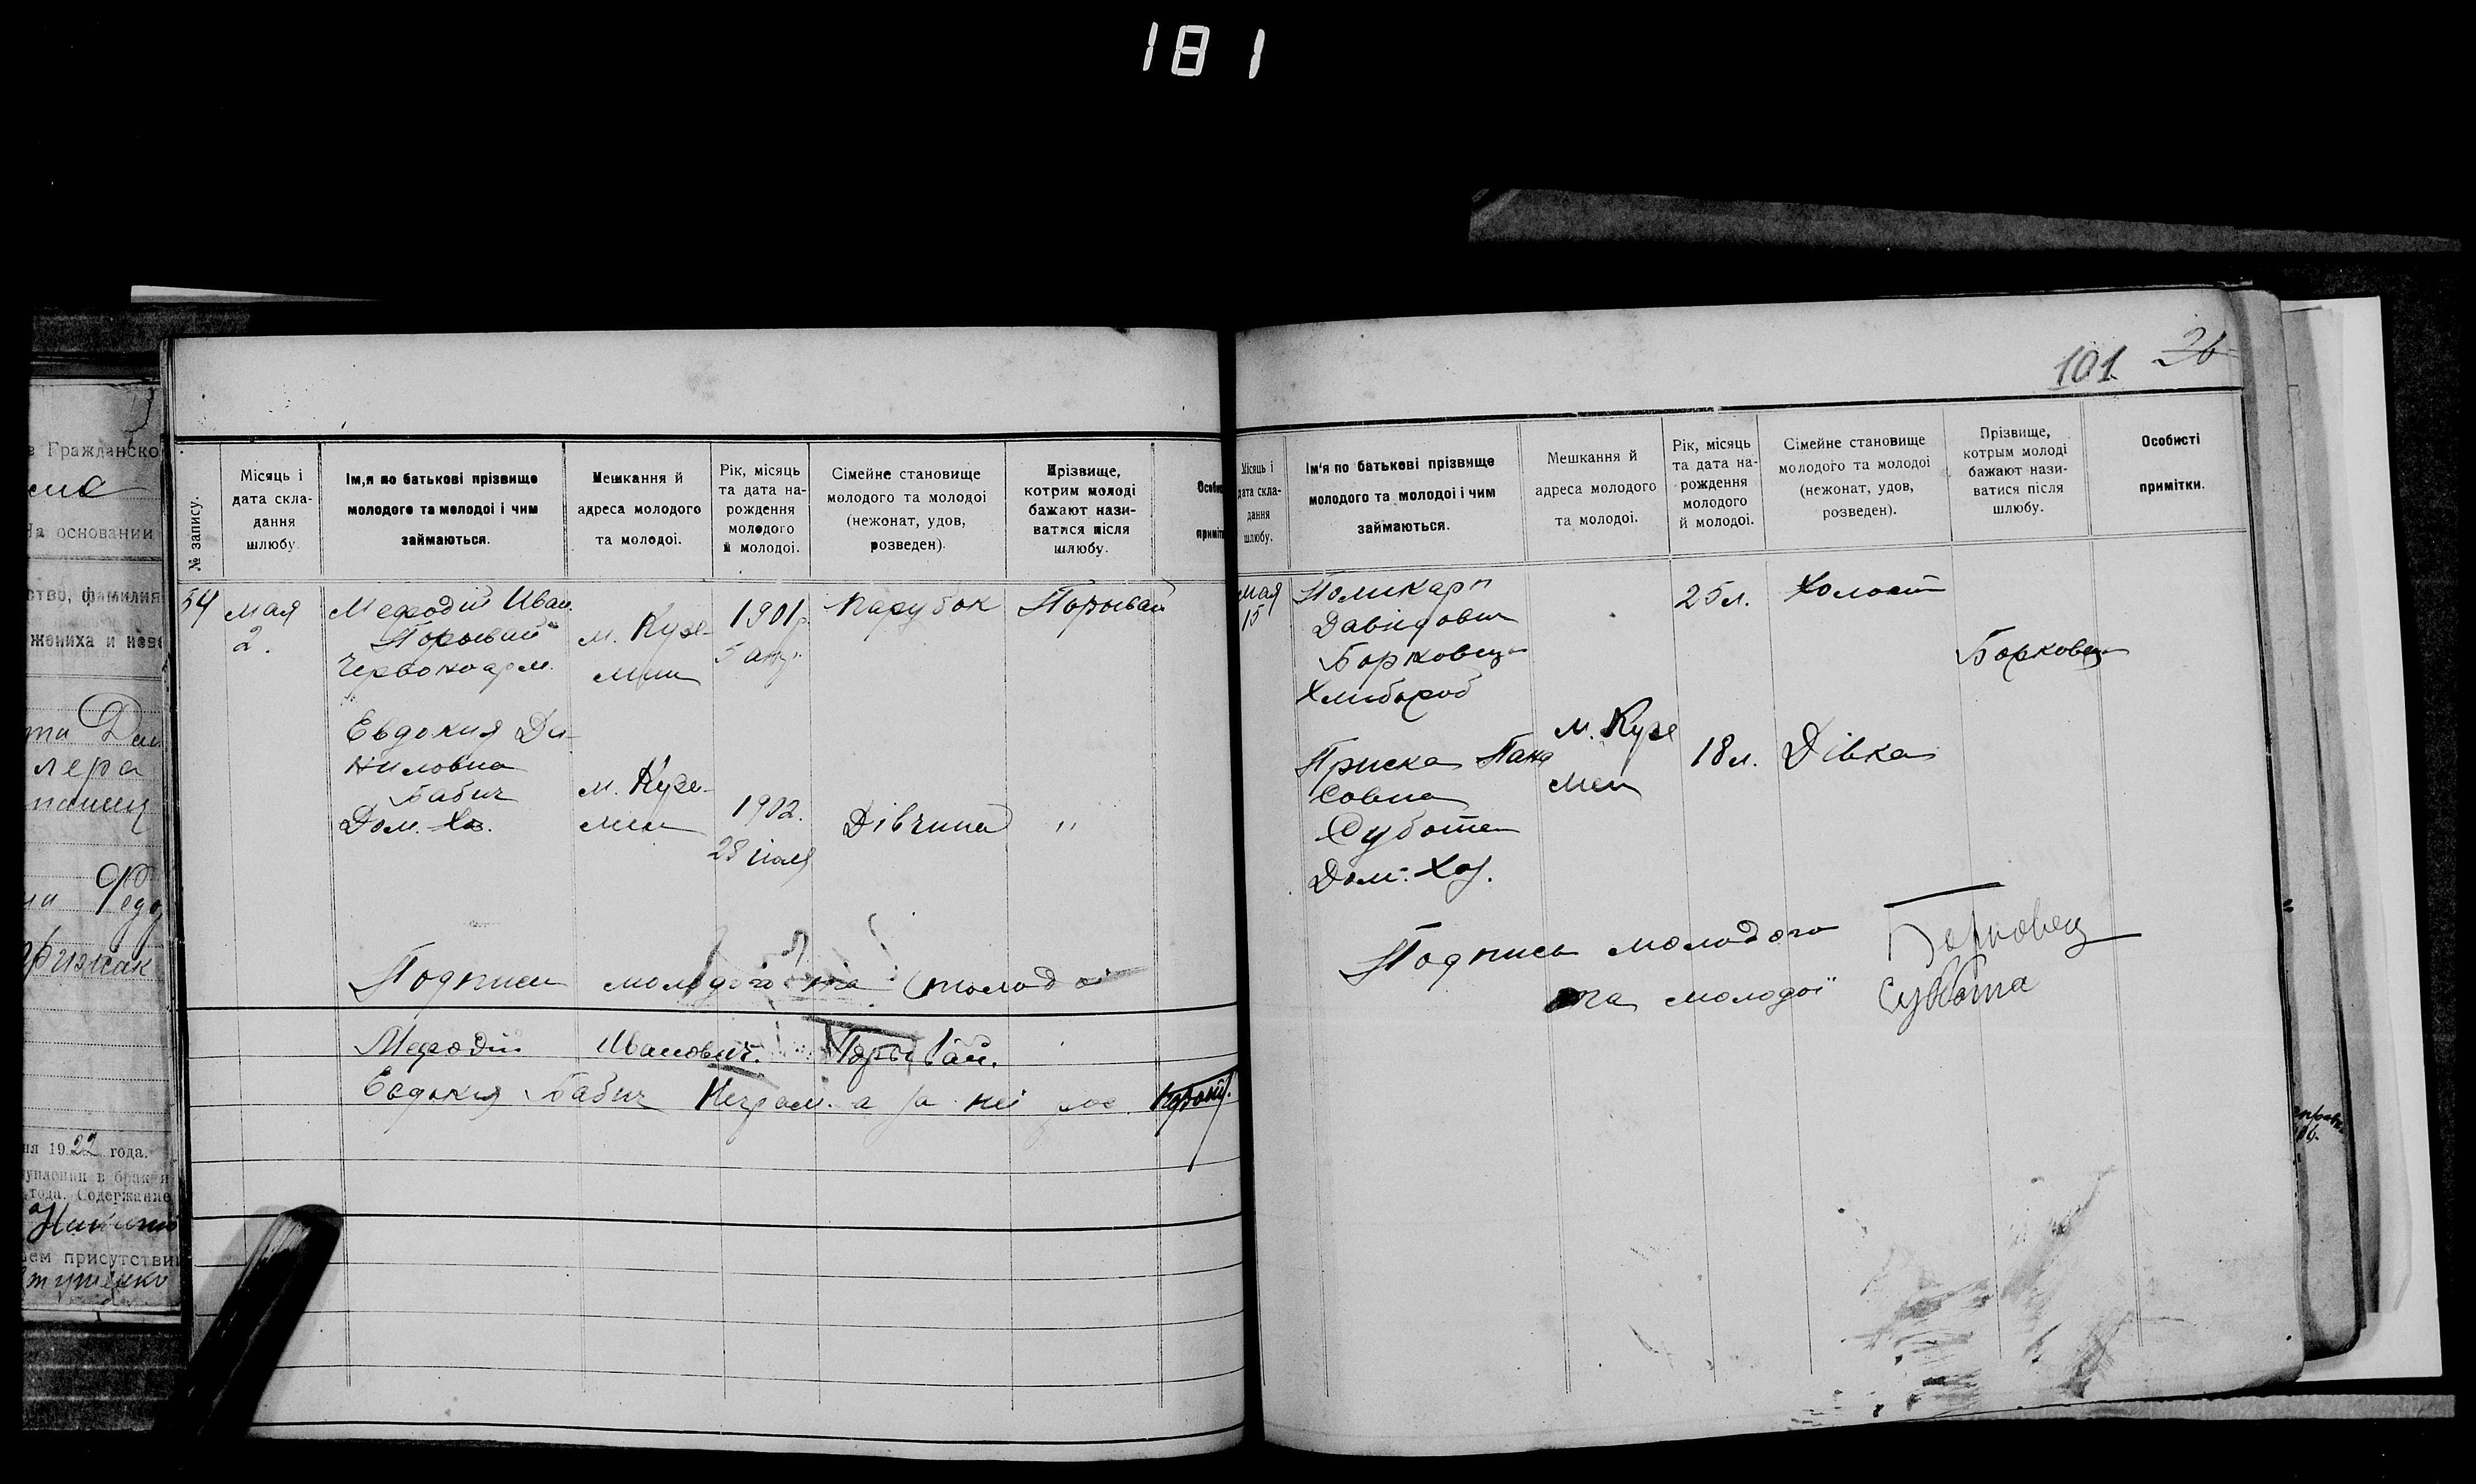 181
в Гражданско
На основании
ство, фамилия
жениха и неве
лера
Федо
ня 1922 года.
уплении в брак и
года. Содержание
ем присутстви
№ запису.
Місяць і
дата скла-
дання
шлюбу.
Ім,я по батькові прізвище
молодого та молодої і чим
займаються.
Мешкання й
адреса молодого
та молодої.
Рік, місяць
та дата на-
рождення
молодого
й молодої.
Сімейне становище
молодого та молодої
(нежонат, удов,
розведен).
Прізвище,
котрим молоді
бажают нази-
ватися після
шлюбу.
Особис
приміт
54 мая
2.
Мефодій Иван
Порывай
Червоноарм.
м. Кузе-
мин
1901р.
5 апр.
Парубок
Порывай
Евдокия Да-
ниловна
Бабич
Дом. Хоз.
м. Кузе-
мен
1902.
28 июля
Дівчина
"
Подписи молодого та молодоі
Мефодій Иванович Порывай.
Евдокия Бабич Неграм. а за неі рос.
101 26
Місяць і
дата скла-
дання
шлюбу.
Ім'я по батькові прізвище
молодого та молодої і чим
займаються.
Мешкання й
адреса молодого
та молодої.
Рік, місяць
та дата на-
рождення
молодого
й молодої.
Сімейне становище
молодого та молодої
(нежонат, удов,
розведен).
Прізвище,
котрым молоді
бажают нази-
ватися після
шлюбу.
Особисті
примітки.
мая
15
Поликарп
Давидович
Борковец
Хлибороб
25 л.
Холост
Борковец
Приска Пана
совна
Субота
Дом. Хоз.
м. Кузе
мен
18 л.
Дівка
Подписи молодого Борковец
та молодої Суббота